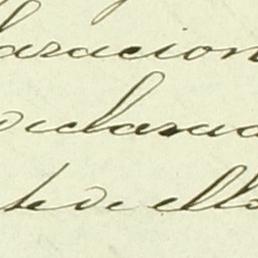 laracion
declarac
te de ello